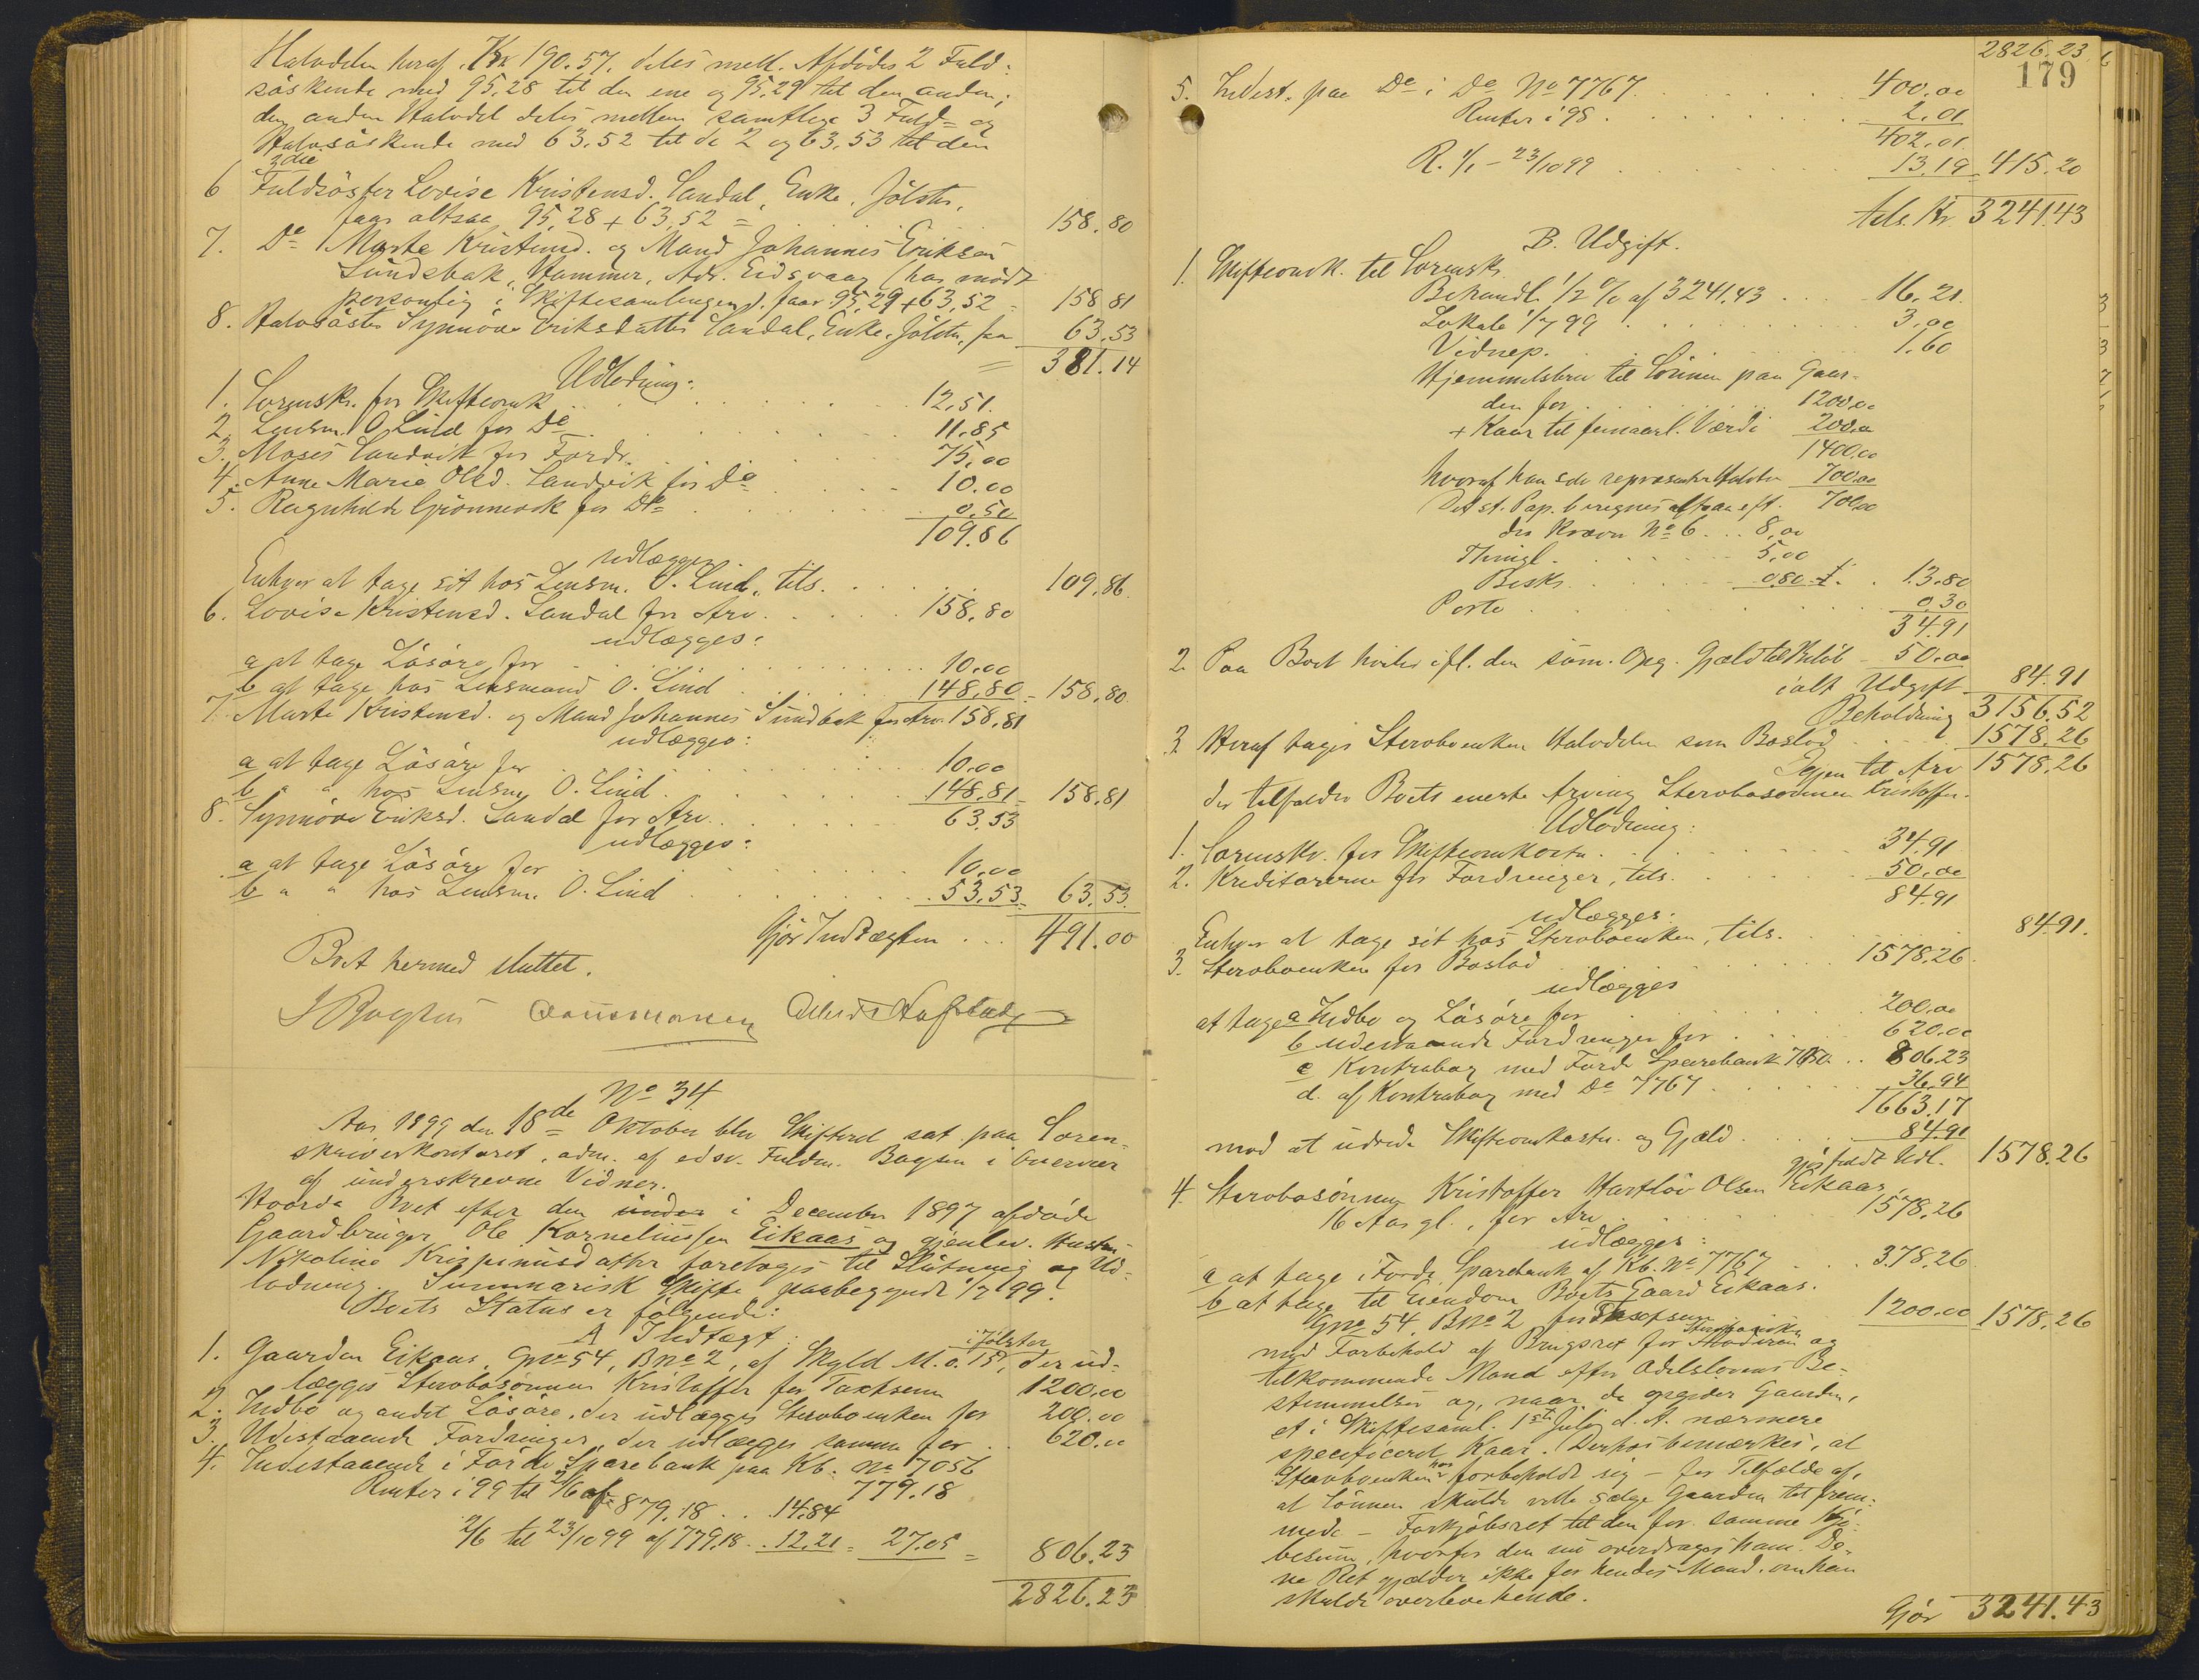 Halvdelen heraf, Kr. 190.57, deles mell. Afdødes 2 Fuld-
søskende med 95,28 til den ene og 95,29 til den anden;
den anden Halvdel deles mellem samtlige 3 Fuld- og
Halvsøskende med 63,52 til de 2 og 63,53 til den
3die
6 Fuldsøster Lovise Kristensd. Sandal, Enke, Jølster,
faar altsaa 95,28 + 63,52 = 158.80
7. Do Marte Kristensd. og Mand Johannes Eriksen
Sundsbak, Hammer, Adr. Eidsvaag, har mødt
personlig i Skiftesamlingen, faar 95,29 + 63,52 = 158.81
8. Halvsøster Synnøve Eriksdatter Sandal, Enke, Jølster, faar 63.53
= 381.14
Udlodning:
1. Sorenskr. for Skifteomk. 12,51.
2. Lensm. O. Lind for Do 11.85
3. Moses Sandvik for Fordr. 75,00
4. Anne Marie Olsd. Sandvik for Do 10.00
5. Ragnhilde Grønnevik for Do 0.50
109.86
udlægges
Enhver at tage sit hos Lensm. O. Lind, tils. 109,86.
6. Lovise Kristensd. Sandal for Arv. 158,80
udlægges:
a at tage Løsøre for 10.00
b at tage hos Lensmand O. Lind 148,80 = 158,80.
7. Marte Kristensd. og Mand Johannes Sundbak for Arv. 158,81
udlægges:
a at tage Løsøre for 10.00
b " " hos Lensm. O. Lind. 148,81 = 158,81
8. Synnøve Eriksd. Sandal for Arv. 63,53
udlægges:
a at tage Løsøre for 10,00
b " " hos Lensm. O. Lind 53,53 = 63.53.
Gjør Indtægten ... 491.00
Boet hermed sluttet.
No 34
Aar 1899 den 18de Oktober blev Skifteret sat paa Soren-
skriverkontoret, adm. af edsv. Fuldm. Bagsen i Overvær
af underskrevne Vidner.
Hvorda Boet efter den i December 1897 afdøde
Gaardbruger Ole Korneliussen Eikaas og gjenlev. Hustru
Nikoline Krispinusdatter foretoges til Slutning og Ud-
lodning. Summarisk Skifte paabegyndt 1/7 99.
Boets Status er følgende:
A Indtægt:
i Jølster
1. Gaarden Eikaas, Gno 54, Bno 2, af Skyld M. 0.15, der ud-
lægges Sterbosønnen Kristoffer for Taxtsum 1200,00
2. Indbo og andet Løsøre, der udlægges Sterboenken for 200.00
3. Udestaaende Fordringer, der udlægges samme for 620.00
4. Indestaaende i Førde Sparebank paa Kb. No 7056 779.18
Renter i 99 til 2/6 af 879.18 .. 14.84
2/6 til 23/10 99 af 779,18 .. 12.21 = 27.05 = 806.23
2826.23
2826.23
179
5. Indest. paa Do i Do No 7767 400.00
Renter i 98 2.01
402.01.
R. 1/1 - 23/10 99 13.19 = 415.20
tils. Kr. 3241.43
B. Udgift.
1. Skifteomk. til Sorensk.
Behandl. 1/2 % af 3241,43 16.21.
Lokale 1/7 99 3.00
Vidnep. 1.60
Hjemmelsbrev til Sønnen paa Gaar-
den for 1200.00
+ Kaar til femaarl. Værdi 200.00
1400.00
hvoraf han selv repræsenter Halvden 700.00
Det st. Pap. beregnes altsaa eft. 700.00
der kræver No 6 .. 8,00
Thingl. 5,00
Beskr. 0.80 t. 13.80
Porto 0.30
34.91
2. Paa Boet hviler ifl. den sum. Opg. Gjæld til Beløb 50.00
ialt Udgift 84.91
Beholdning 3156.52
3. Heraf tages Sterboenken Halvdelen som Boslod 1578.26
Igjen til Arv 1578.26
der tilfalder Boets eneste Arving Sterbosønnen Kristoffer.
Udlodning:
1. Sorenskr. for Skifteomkostn. 34.91
2. Kreditorerne for Fordringer, tils. 50.00
84.91
udlægges:
Enhver at tage sit hos Sterboenken, tils. 84.91.
3. Sterboenken for Boslod 1578.26
udlægges
at tage a Indbo og Løsøre for 200.00
b udestaaende Fordringer for 620.00
c Kontrabog med Førde Sparebank 7056 .. 806.23
d. af Kontrabog med Do 7767 36.94
1663.17
mod at udrede Skifteomkostn. og Gjæld 84.91
gjør fuldt Udl. 1578.26
4. Sterbosønnen Kristoffer Hartløv Olsen Eikaas,
16 Aar gl., for Arv 1578,26
udlægges:
a at tage i Førde Sparebank af Kb. No 7767 378.26
b at tage til Eiendom Boets Gaard Eikaas.
Gno 54, Bno 2 for Taxtsum 1200.00 1578,26
Sterboenken
med Forbehold af Brugsret for Moderen og
tilkommende Mand efter Odelslovens Be-
stemmelser og, naar de opgiver Gaarden,
et i Skiftesaml. 1ste Juli d. A. nærmere
specificeret Kaar. Derhos bemærkes, at
har
Sterboenken forbeholdt sig – for Tilfælde af,
at Sønnen skulde ville sælge Gaarden til frem-
mede – Forkjøbsret til den for samme Kjø-
besum, hvorfor den nu overdrages ham. Den-
ne Ret gjælder ikke for hendes Mand, om han
skulde overleve hende.
Gjør 3241.43